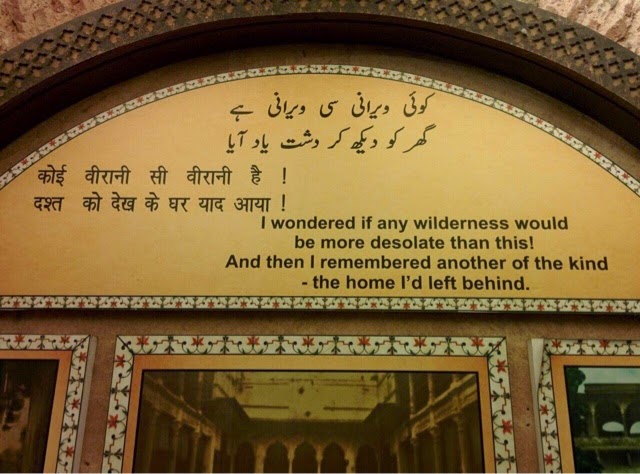 کوئی ویرانی سی ویرانی ہے
گھر کو دیکھ کر دشت یاد آیا
कोई वीरानी सी वीरानी है !
दश्त को देख के घर याद आया !
I wondered if any wilderness would
be more desolate than this!
And then I remembered another of the kind
- the home I'd left behind.